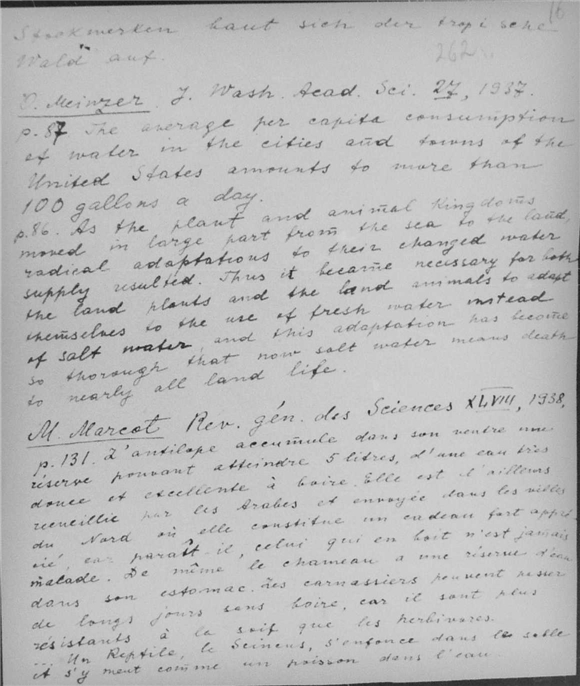 16
Stockwerken baut sich der tropische
Wald auf.
262
O. Meinzer J. Wash. Acad. Sci. 27, 1937.
p. 87 The average per capita consumption
of water in the cities and towns of the
United States amounts to more than
100 gallons a day.
p.86. As the plant and animal Kingdoms
moved in large part from the sea to the land,
radical adaptations to their changed water
supply resulted. Thus it became necessary for both
the land plants and the land animals to adapt
themselves to the use of fresh water instead
of salt water, and this adaptation has become
so thorough that now salt water means death
to nearly all land life.
M. Marcot Rev. gén. des Sciences XLVIII, 1938,
p.131. L'antilope accumule dans son ventre une
réserve pouvant atteindre 5 litres, d'une eau très
douce et excellente à boire. Elle est d'ailleurs
recueillie par les Arabes et envoyée dans les villes
du Nord où elle constitue un cadeau fort appré-
cié, car paraît-il, celui qui en boit n'est jamais
malade. De même le chameau a une réserve d'eau
dans son estomac. Les carnassiers peuvent passer
de longs jours sans boire, car il sont plus
résistants à la soif que les herbivores.
... Un Reptile, le Scincus, s'enfonce dans le sable
et s'y meut comme un poisson dans l'eau.